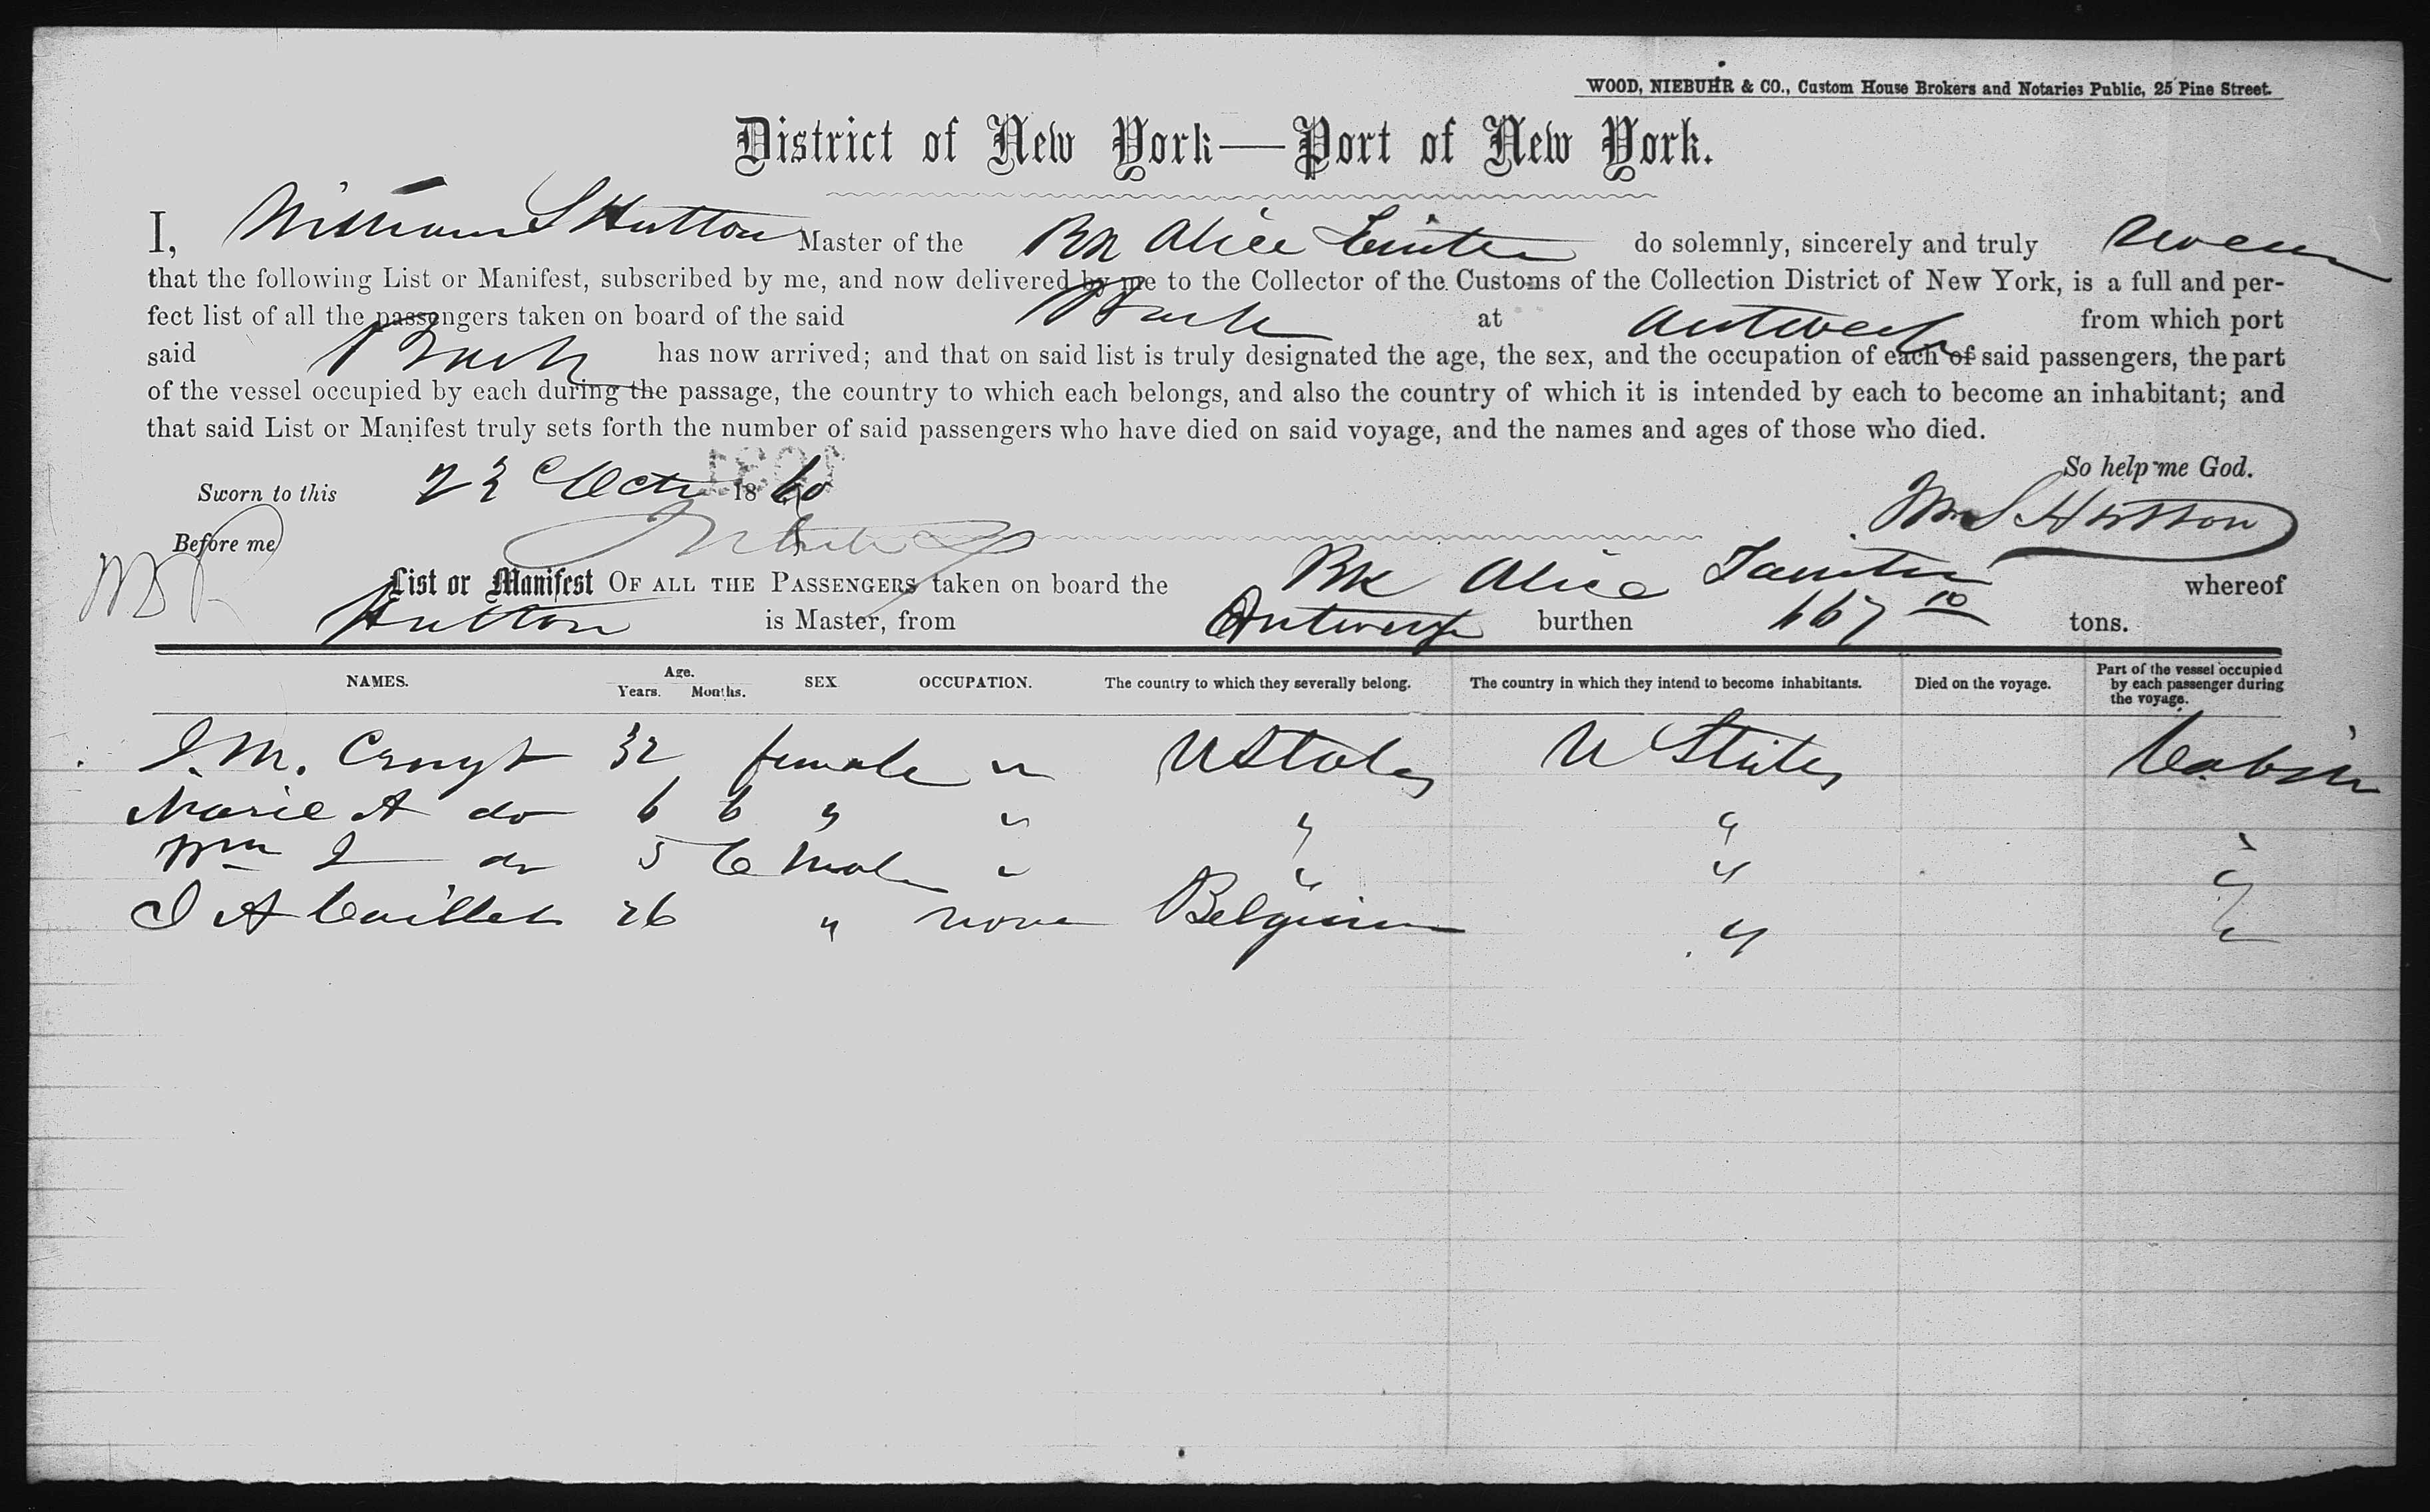 WOOD, NIEBUHR & CO., Custom House Brokers and Notaries Public, 25 Pine Street.
District of New York—Port of New York.
I, William S Hutton Master of the Bk Alice Tainter do solemnly, sincerely and truly swear
that the following List or Manifest, subscribed by me, and now delivered by me to the Collector of the Customs of the Collection District of New York, is a full and per-
fect list of all the passengers taken on board of the said Bark at Antwerp from which port
said Bark has now arrived; and that on said list is truly designated the age, the sex, and the occupation of each of said passengers, the part
of the vessel occupied by each during the passage, the country to which each belongs, and also the country of which it is intended by each to become an inhabitant; and
that said List or Manifest truly sets forth the number of said passengers who have died on said voyage, and the names and ages of those who died.
So help me God.
Sworn to this 23 Octr 1860
Wm S Hutton
Before me
List or Manifest OF ALL THE PASSENGERS taken on board the Bk Alice Tainter whereof
Hutton is Master, from Antwerp burthen 667 10 tons.
NAMES. Age. Years. Months. SEX OCCUPATION. The country to which they severally belong. The country in which they intend to become inhabitants. Died on the voyage. Part of the vessel occupied by each passenger during the voyage.
J. M. 32 female " U States U States Cabin
Marie A do 6 6 " " " " "
Wm J do 5 6 Male " " " "
J A Caillet 26 " none Belgium " "